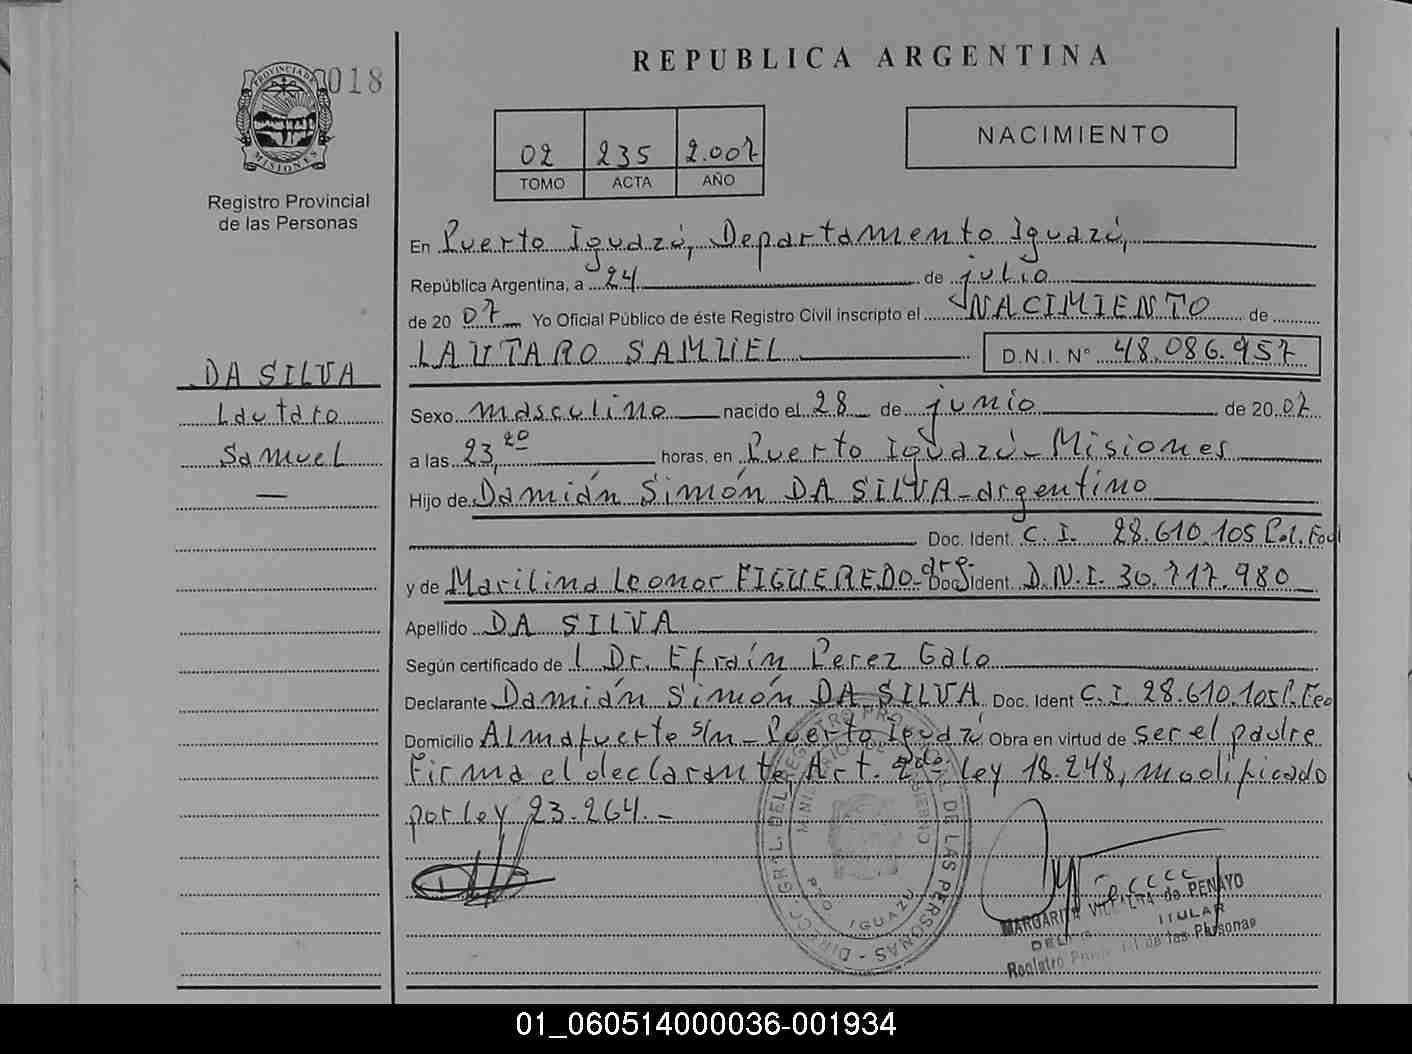 REPUBLICA ARGENTINA
018
PROVINCIA DE MISIONES
Registro Provincial
de las Personas
02 235 2.007
TOMO ACTA AÑO
NACIMIENTO
DA SILVA
Lautaro
Samuel
—
En Puerto Iguazú, Departamento Iguazú,
República Argentina, a 24 de julio
de 20 07 Yo Oficial Público de éste Registro Civil inscripto el NACIMIENTO de
LAUTARO SAMUEL D.N.I. Nº 48.086.957
Sexo masculino nacido el 28 de junio de 20 07
a las 23,20 horas, en Puerto Iguazú - Misiones
Hijo de Damián Simón DA SILVA - argentino
Doc. Ident. C. I. 28.610.105 Pol. Fed
y de Marilina Leonor FIGUEREDO - arg. Doc. Ident. D.N.I. 30.717.980
Apellido DA SILVA
Según certificado de l Dr. Efraín Perez Galo
Declarante Damián Simón DA SILVA Doc. Ident C.I. 28.610.105 P. Fed
Domicilio Almafuerte s/n - Puerto Iguazú Obra en virtud de ser el padre
Firma el declarante, Art. 2do. Ley 18.248, modificado
por ley 23.264. -
DIRECC. GRAL. DEL REGISTRO PROVINCIAL DE LAS PERSONAS
MINISTERIO DE GOBIERNO
PTO. IGUAZU
MARGARITA de PENAYO
TITULAR
Registro de las Personas
01_060514000036-001934